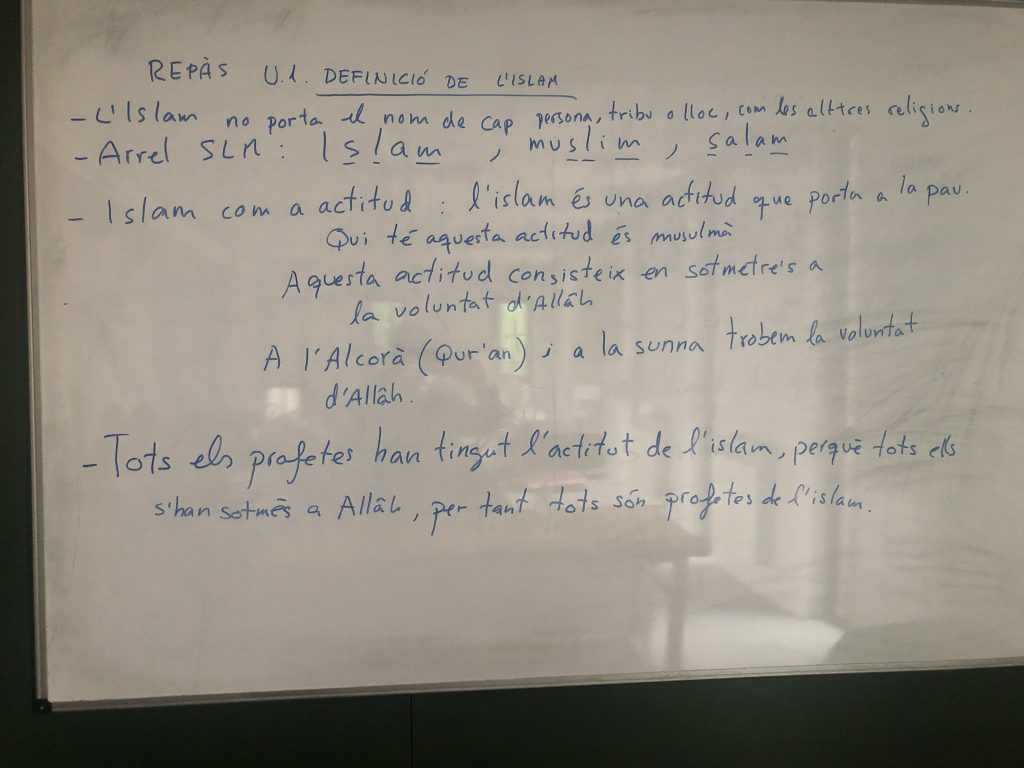 REPÀS U.1. DEFINICIÓ DE L'ISLAM
- L'Islam no porta el nom de cap persona, tribu o lloc, com les alttres religions.
- Arrel SLM : Islam , muslim , salam
- Islam com a actitud : l'islam és una actitud que porta a la pau.
Qui té aquesta actitud és musulmà
Aquesta actitud consisteix en sotmetre's a
la voluntat d'Allâh
A l'Alcorà (Qur'an) i a la sunna trobem la voluntat
d'Allâh.
- Tots els profetes han tingut l'actitut de l'islam, perquè tots ells
s'han sotmès a Allâh, per tant tots són profetes de l'islam.